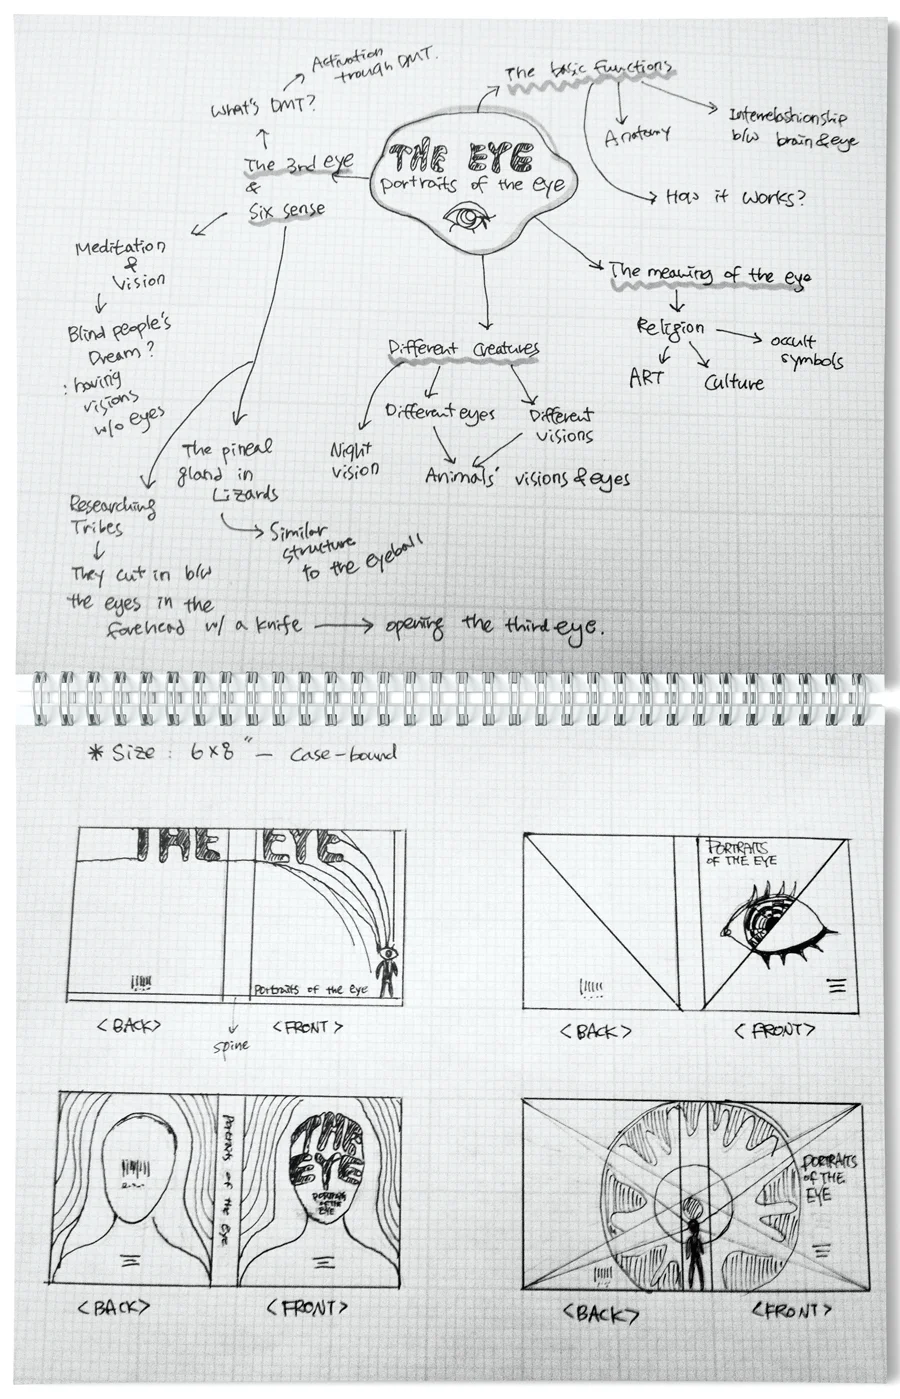 Activation
trough DMT.
What's DMT?
The 3rd eye
&
Six sense
THE EYE
portraits of the eye
The basic functions
Anatomy
Interrelashionship
b/w brain & eye
How it works?
The meaning of the eye
Religion
occult
symbols
ART
Culture
Meditation
&
Vision
Blind people's
Dream?
: having
visions
w/o eyes
Different Creatures
Different eyes
Different
visions
Night
vision
Animals' visions & eyes
The pineal
gland in
Lizards
Similar
structure
to the eyeball
Researching
Tribes
They cut in b/w
the eyes in the
forehead w/ a knife
opening the third eye.
* Size : 6×8" – Case-bound
THE EYE
Portraits of the eye
<BACK>
<FRONT>
spine
PORTRAITS
OF THE EYE
<BACK>
<FRONT>
Portraits of the Eye
THE
EYE
PORTRAITS
OF THE
EYE
<BACK>
<FRONT>
PORTRAITS
OF THE
EYE
<BACK>
<FRONT>